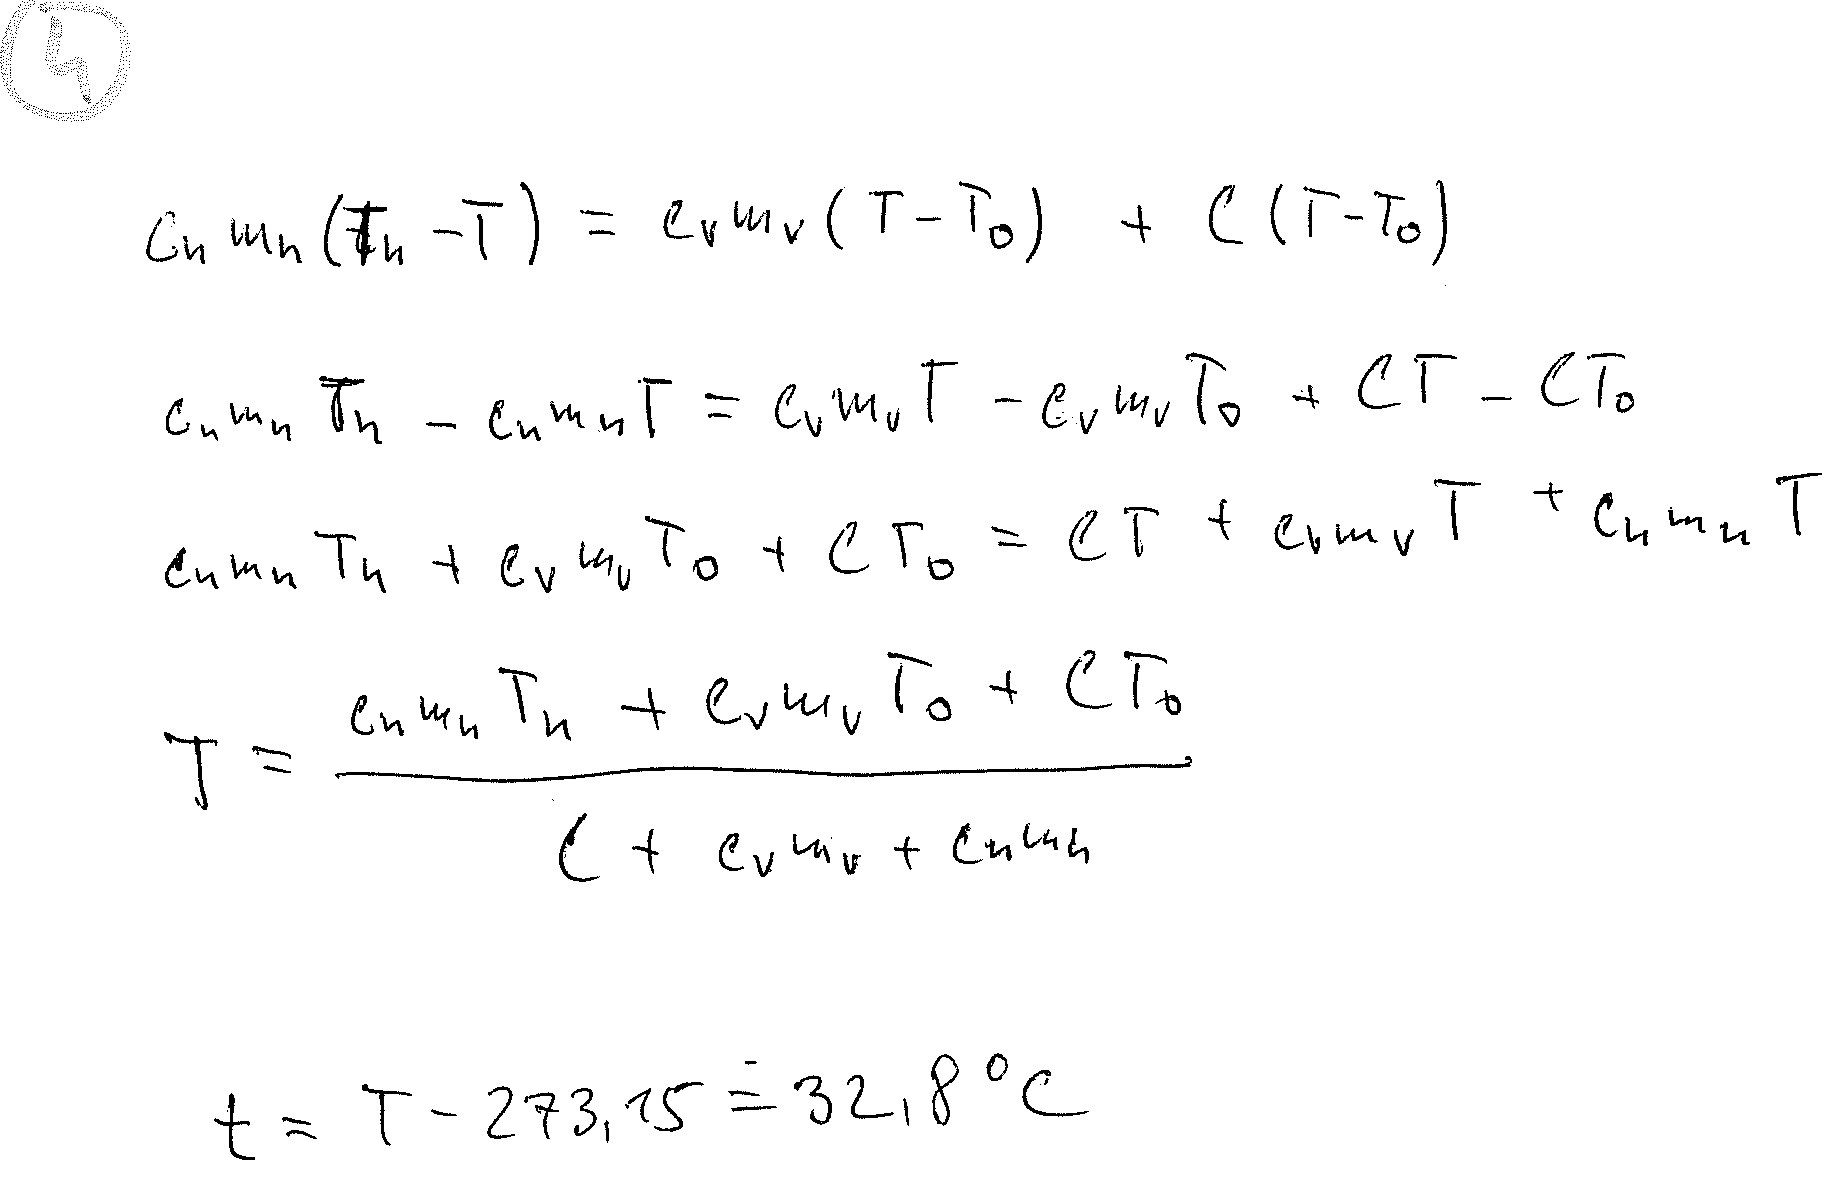 4
cₙmₙ(Tₙ-T) = cᵥmᵥ(T-T₀) + C(T-T₀)
cₙmₙTₙ - cₙmₙT = cᵥmᵥT - cᵥmᵥT₀ + CT - CT₀
cₙmₙTₙ + cᵥmᵥT₀ + CT₀ = CT + cᵥmᵥT + cₙmₙT
T = (cₙmₙTₙ + cᵥmᵥT₀ + CT₀) / (C + cᵥmᵥ + cₙmₙ)
t = T - 273,15 ≐ 32,8 °C